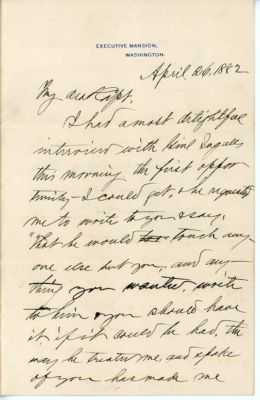 EXECUTIVE MANSION,
WASHINGTON.
April, 26, 1882
My dear Capt,
I had a most delightful
interview with Genl Ingalls
this morning the first oppor
tunity - I could get, & he requested
me to write to you & say,
"that he would touch any
one else but you, and any
thing you wanted, write
to him & you should have
it if it could be had, the
way he treated me, and spoke
of you has made me